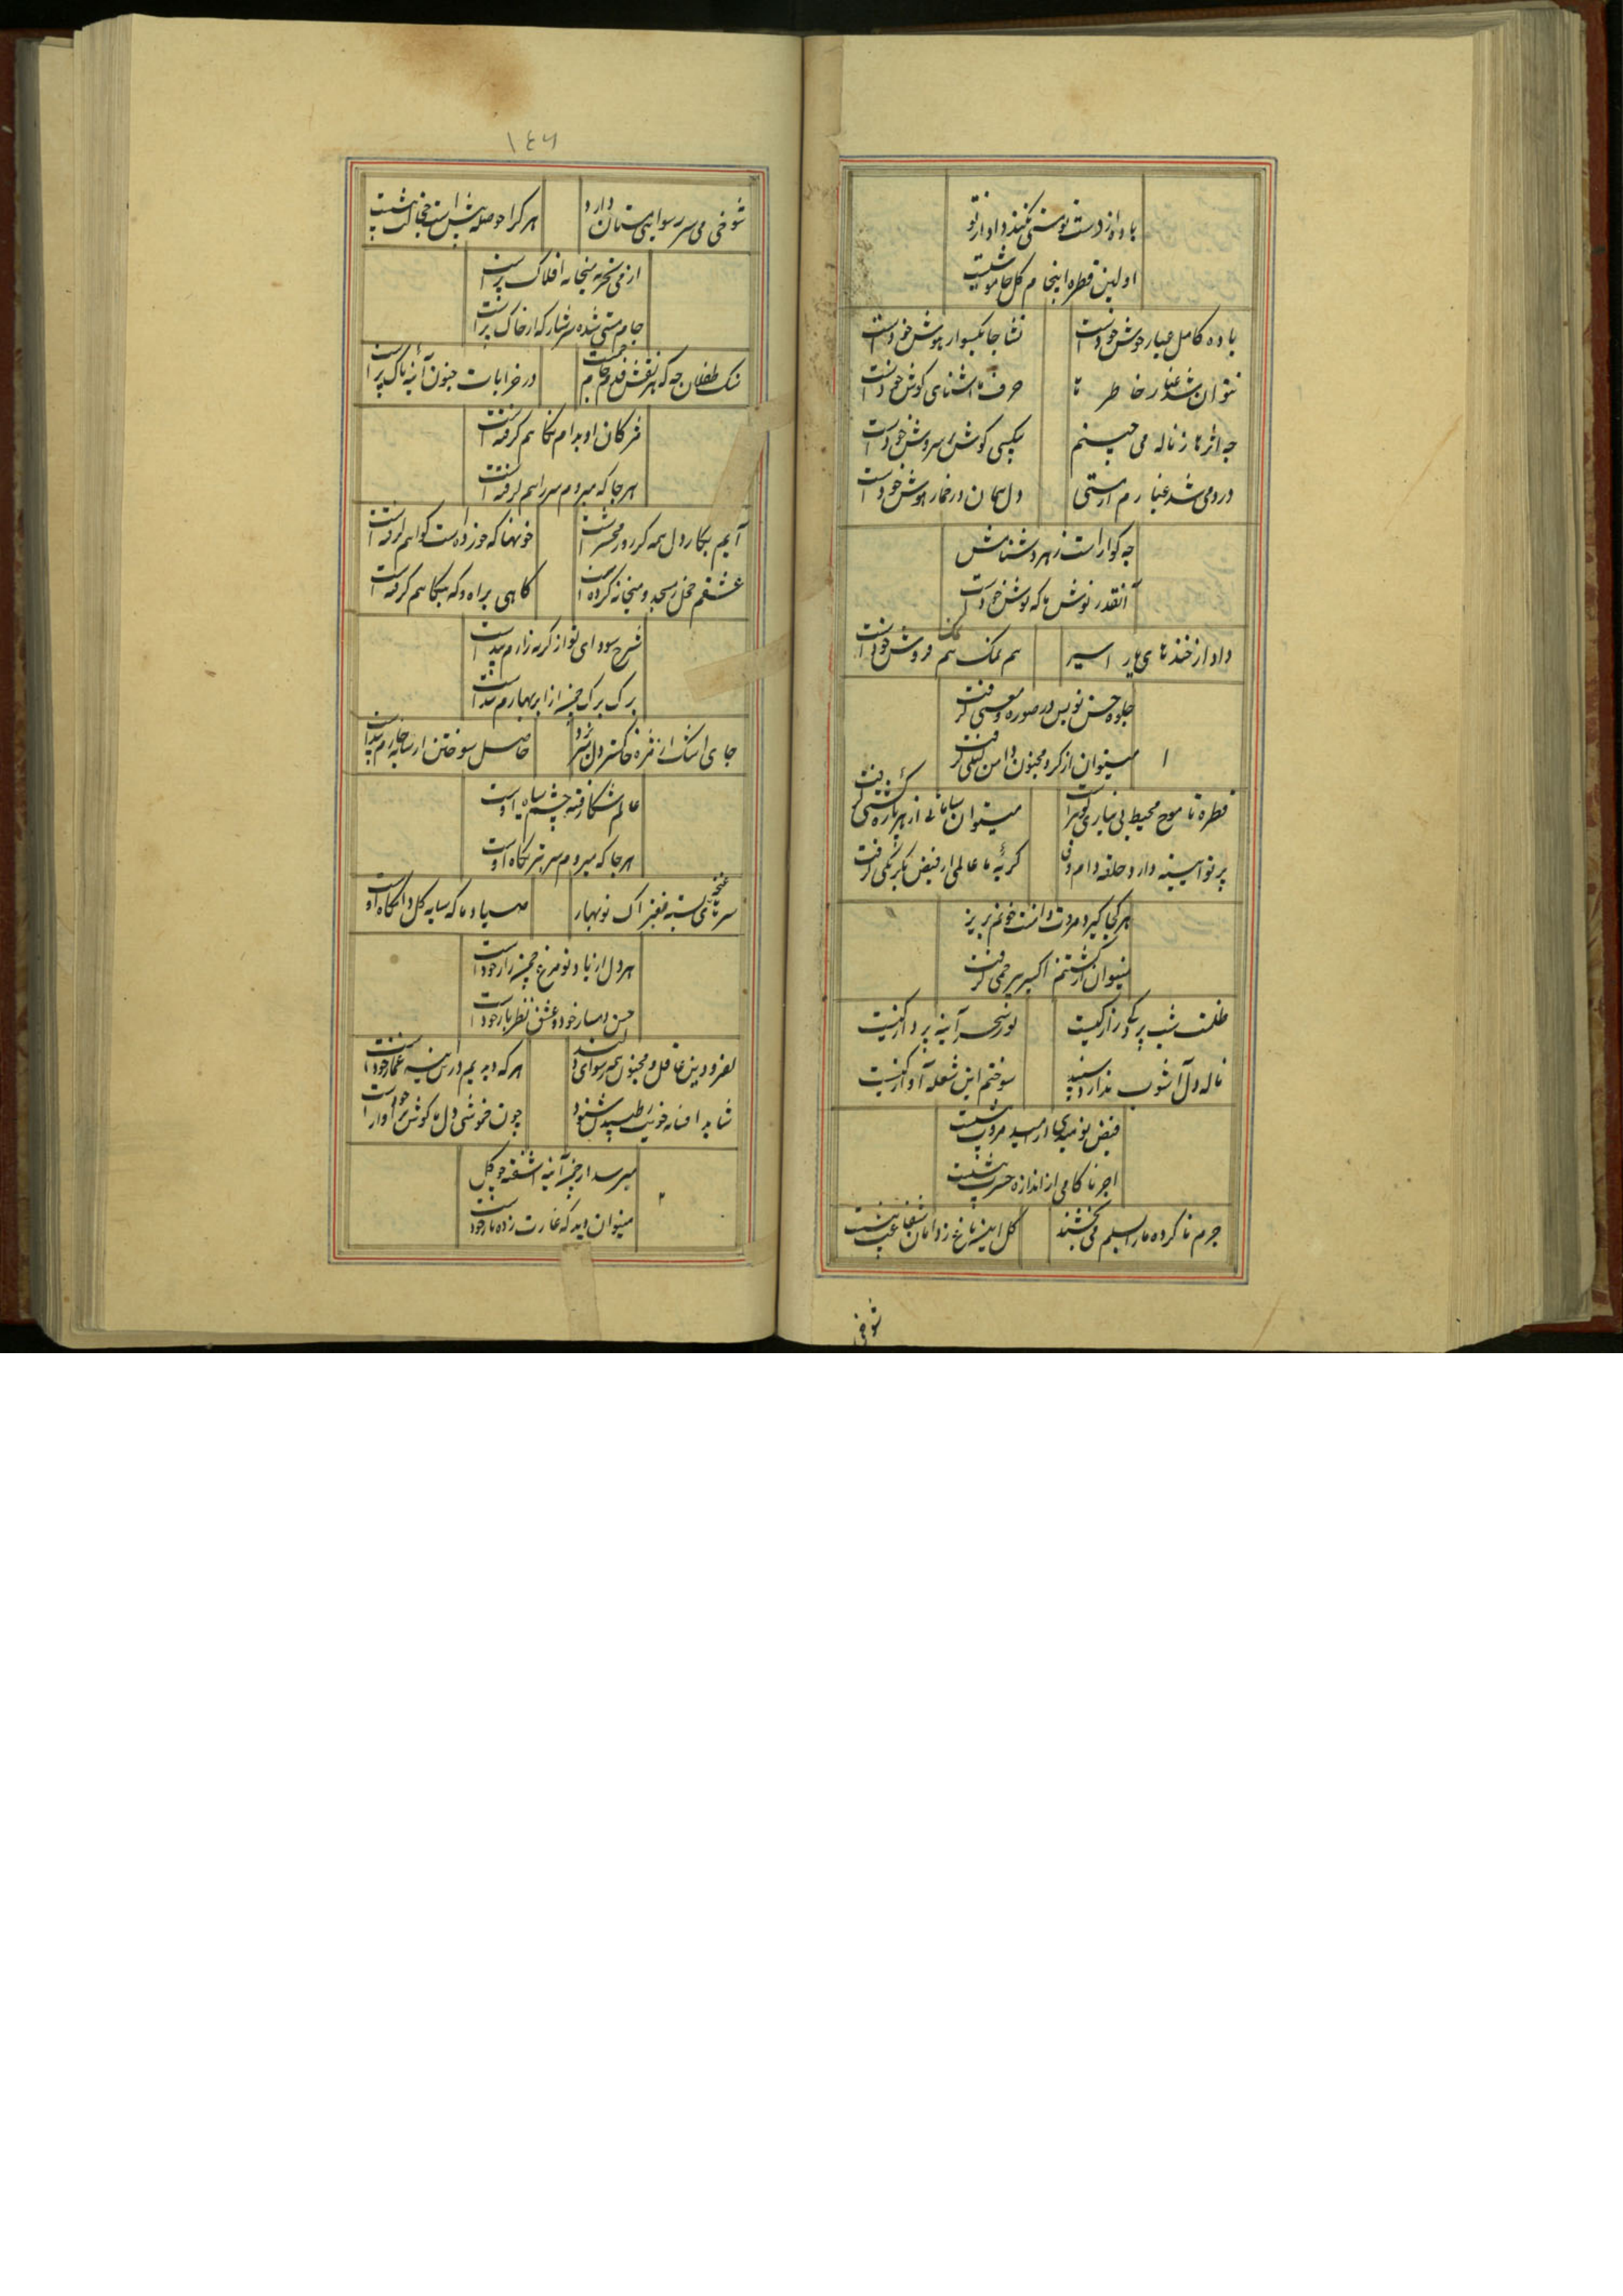 باده از دست تو مستی نکند داد از تو
اولین قطره اینجام گل خاموشیست
باده کامل عیار جوش خودست
نشا چابکسوار هوش خودست
نتوان شد غبار خاطر ما
حرف ما آشنای گوش خودست
چه اثرها ز ناله می چینم
بیکسی گوش بر سروش خودست
درد می شد غبارم از مستی
دل همان در خمار هوش خودست
چه گواراست زهر دشنامش
آنقدر نوش ها که نوش خودست
داد از خنده های یار اسیر
هم نمک هم نمک فروش خودست
جلوه حسن تو بس در صورت و معنی گرفت
میتوان از گرد مجنون دامن لیلی گرفت
قطره تا موج محیط بی نیازی گوهر است
میتوان سامانی از هر پاره کشتی گرفت
گریه ما عالمی از فیض یکرنگی گرفت
هر کجا گیرد مروت دامنت خونم بریز
میتوان از کشتنم اکسیر بیرحمی گرفت
ظلمت شب پرگی راز کیست
نور سحر آینه پرداز کیست
ناله دل آشوب ندارد سپند
سوختم این شعله آواز کیست
فیض نومیدی از امید مروت بیشست
اجر ناکامی از اندازه حسرت بیشست
جرم ناکرده ما را سلیم می بخشند
گل این باغ ز دامان شفاعت بیشست
شوخی
۱٤۶
شوخی می سر رسوایی مستان دارد
هر کرا حوصله بیش است خجالت بیشست
از می نخریه میخانه افلاک پر است
جام مستی شده سرشار که از خاک پر است
سنگ طفلان چه که هر نقش قدم جام جمست
در خرابات جنون آینه تاک پر است
مژگان او بدام نگاهم گرفته است
هر جا که میروم سر راهم گرفته است
آیم بکار دل همه گر روز محشر است
خونها که خورده است گواهم گرفته است
عشقم مخل مسجد و میخانه کرده است
گاهی براه و گه بیگاهم گرفته است
شرح سودای تو از گریه زارم پیداست
برگ برگ چمن از ابر بهارم پیداست
جای اشک از مژه خاکستر دل میریزد
حاصل سوختن از سایه خارم پیداست
عالم شکار فتنه چشم سیاه اوست
هر جا که میروم سر تیر نگاه اوست
سر غنچه های بسته بفتراک نوبهار
صیاد ما که سایه گل دامگاه اوست
هر دل از یاد تو مرغ چمن زار خودست
حسن دمساز خود و عشق نظرباز خودست
کفر و دین غافل و مجنون همه رسوای دلند
هر که دیدیم درین سینه غماز خودست
شاید افسانه خونیت طپیدن شنود
چون خموشی دل ما گوش بر آواز خودست
میرسد از چمن آینه آشفته چو گل
میتوان دید که غارت زده ناز خودست